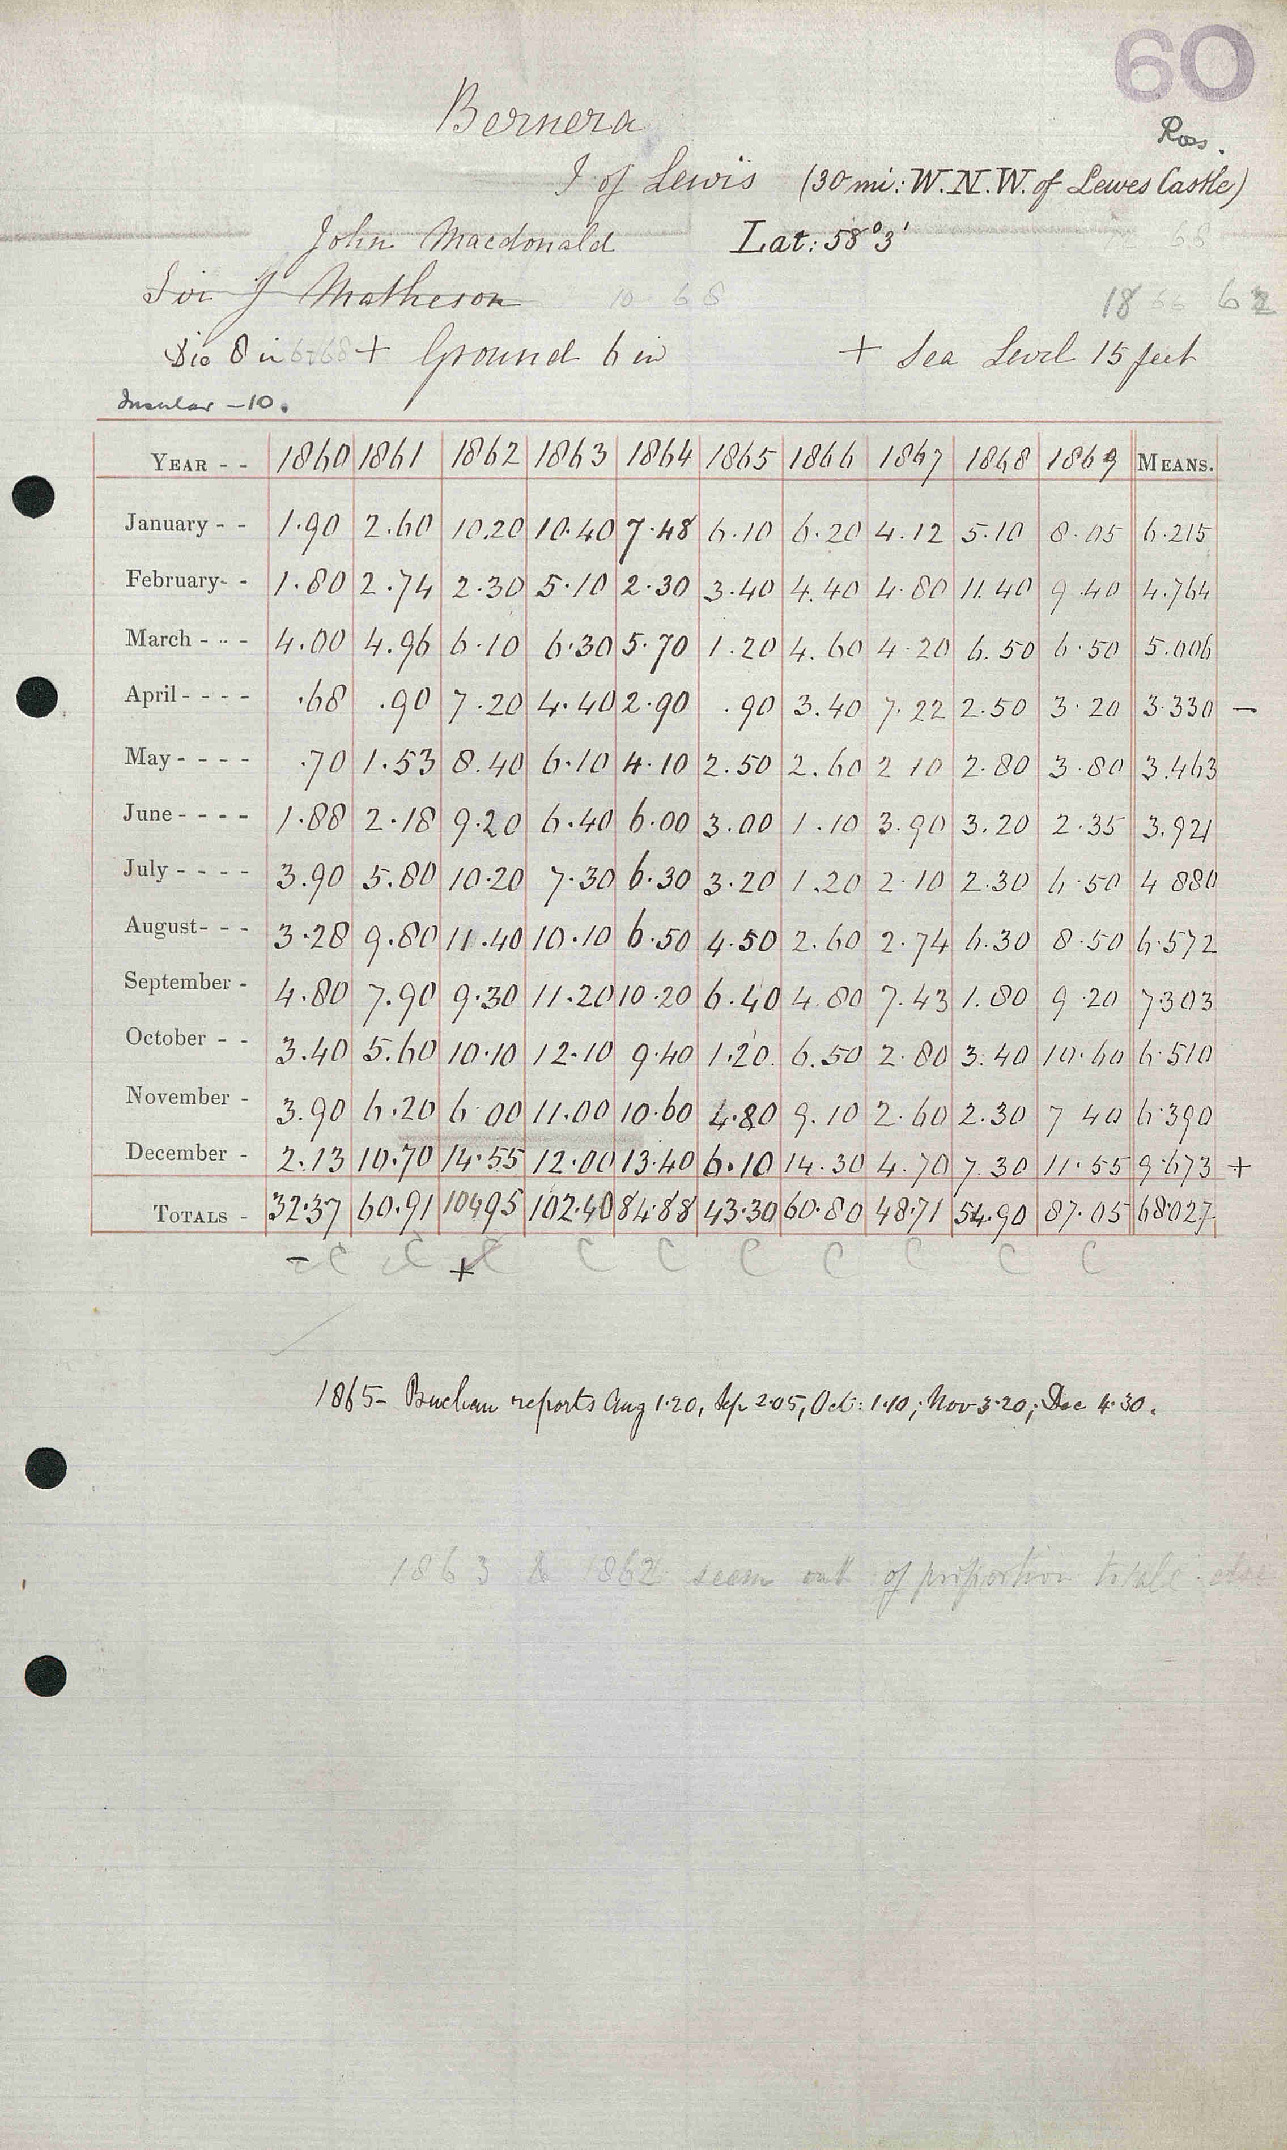 60
Bernera
Ross.
I of Lewis (30 mi: W.N.W. of Lewes Castle)
John Macdonald Lat: 58° 3'
Sir J Matheson
Dia 8 in + Ground 6 in + Sea Level 15 feet
Insular - 10.
YEAR - - 1860 1861 1862 1863 1864 1865 1866 1867 1868 1869 MEANS.
January - - 1.90 2.60 10.20 10.40 7.48 6.10 6.20 4.12 5.10 8.05 6.215
February- - 1.80 2.74 2.30 5.10 2.30 3.40 4.40 4.80 11.40 9.40 4.764
March - - - 4.00 4.96 6.10 6.30 5.70 1.20 4.60 4.20 6.50 6.50 5.006
April - - - - .68 .90 7.20 4.40 2.90 .90 3.40 7.22 2.50 3.20 3.330 -
May - - - - .70 1.53 8.40 6.10 4.10 2.50 2.60 2 10 2.80 3.80 3.463
June - - - - 1.88 2.18 9.20 6.40 6.00 3.00 1.10 3.90 3.20 2.35 3.921
July - - - - 3.90 5.80 10.20 7.30 6.30 3.20 1.20 2.10 2.30 6.50 4 880
August- - - 3.28 9.80 11.40 10.10 6.50 4.50 2.60 2.74 6.30 8.50 6.572
September - 4.80 7.90 9.30 11.20 10.20 6.40 4.80 7.43 1.80 9.20 7.303
October - - 3.40 5.60 10.10 12.10 9.40 1.20. 6.50 2.80 3.40 10.60 6.510
November - 3.90 6.20 6 00 11.00 10.60 4.80 9.10 2.60 2.30 7 40 6.390
December - 2.13 10.70 14.55 12.00 13.40 6.10 14.30 4.70 7.30 11.55 9.673 +
TOTALS - 32.37 60.91 104.95 102.40 84.88 43.30 60.80 48.71 54.90 87.05 68.027
- C C + C C C C C C C C
1865- Buchan reports Aug 1.20, Sep 2.05, Oct: 1.10; Nov 3.20; Dec 4.30.
1863 & 1862 seem out of proportion